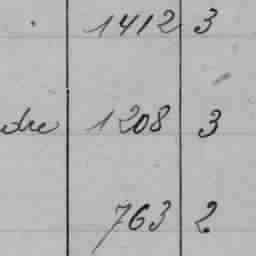 1412 3
1208 3
763 2